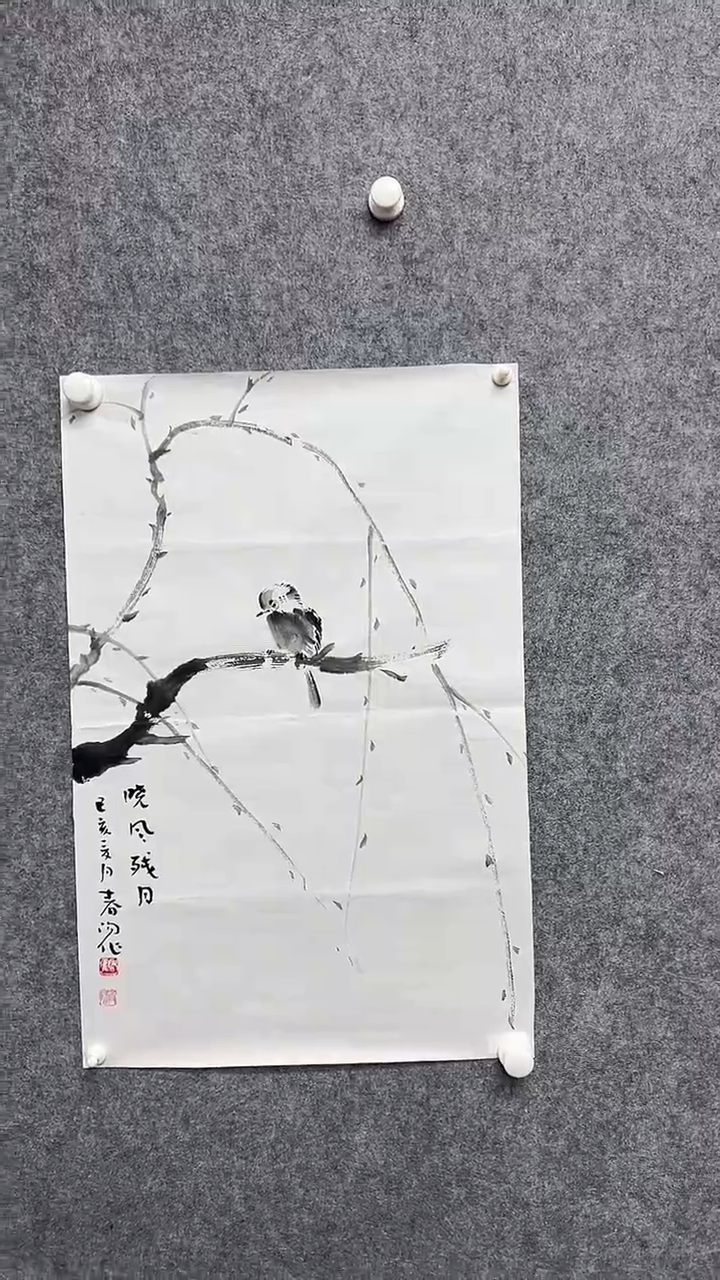 晓风残月
己亥夏月春阳作